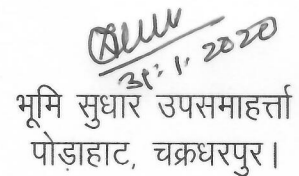 31.1.2020
भूमि सुधार उपसमाहर्त्ता
पोड़ाहाट, चक्रधरपुर।